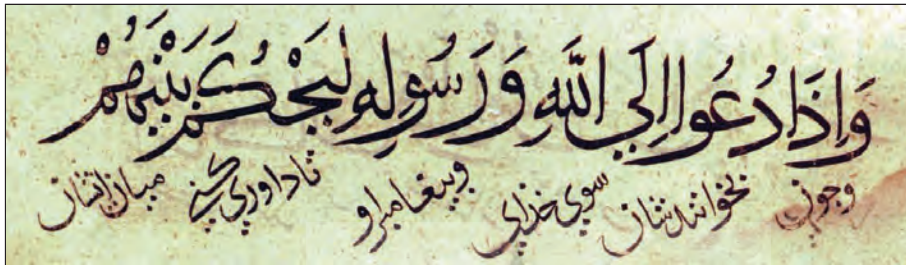 وَإِذَا دُعُوا إِلَي اللَّهِ وَرَسُولِهِ لِيَحْكُمَ بَيْنَهُمْ
و چون بخوانندشان سوی خدای و پیغامبر او تا داوری کنی میان ایشان